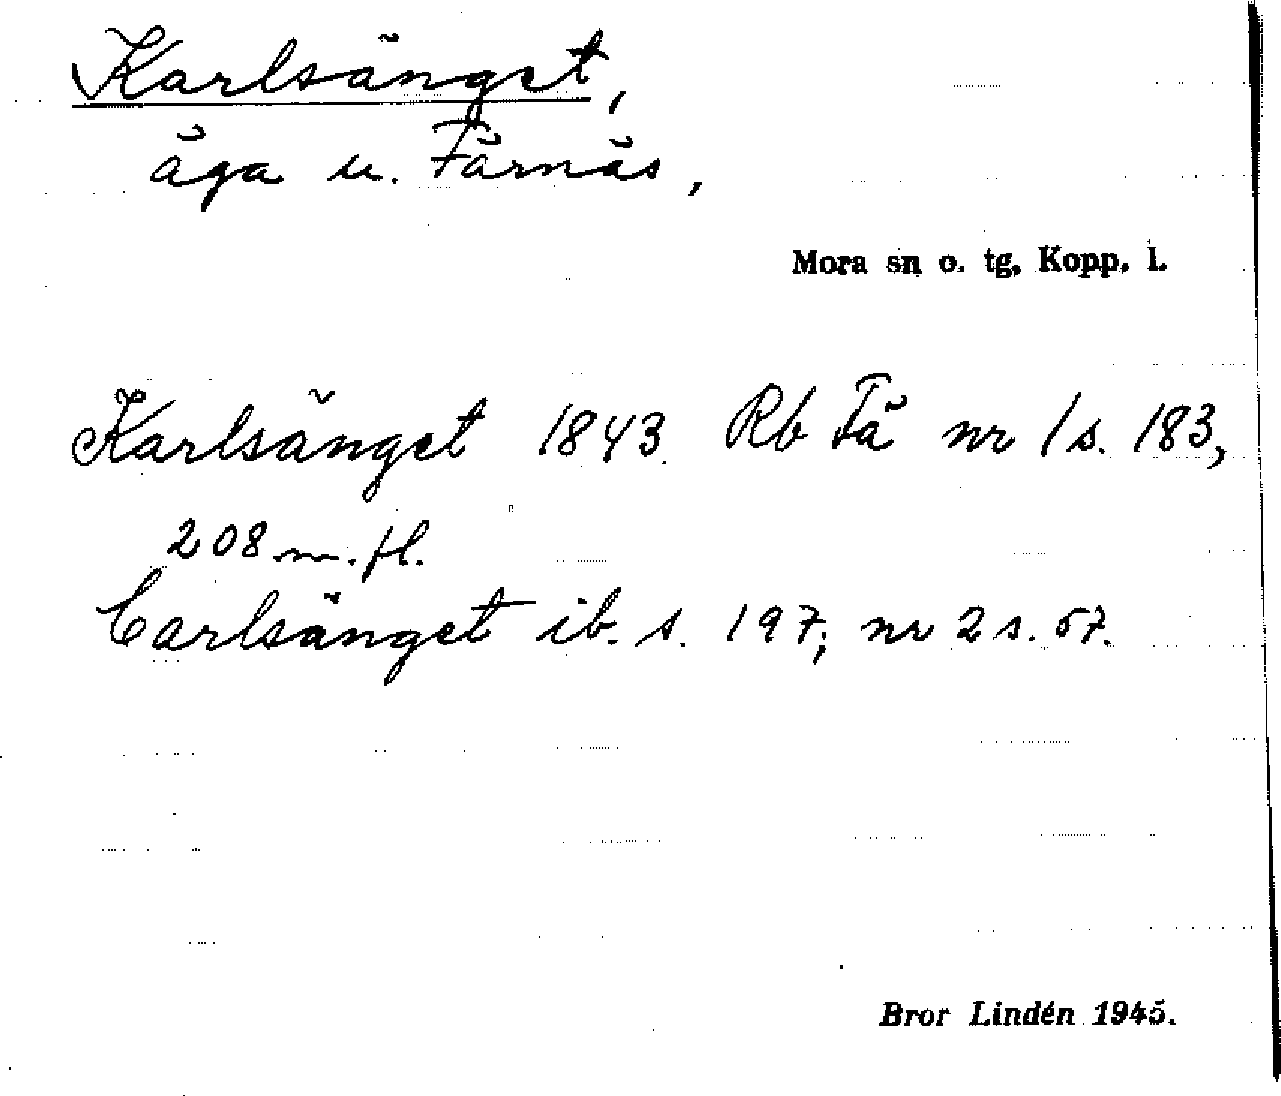 Karlsänget,
äga u. Färnäs,
Mora sn o. tg. Kopp. l.
Karlsänget 1843 Rb Fä nr 1 s. 183,
208 m. fl.
Carlsänget ib. s. 197; nr 2 s. 57.
Bror Lindén 1945.